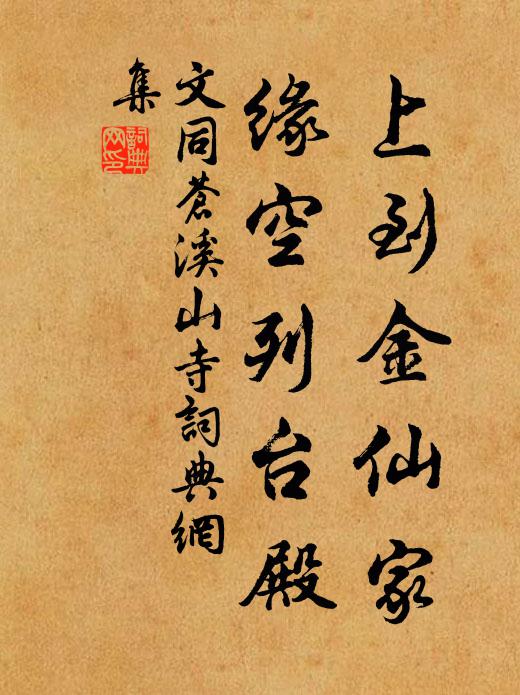 上到金仙家
缘空列台殿
文同苍溪山寺词典網
集
詞典
网印